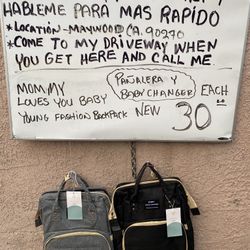 HABLEME PARA MAS RAPIDO
*LOCATION-MAYWOOD CA. 90270
*COME TO MY DRIVEWAY WHEN
YOU GET HERE AND CALL ME.
MOMMY
LOVES YOU BABY
YOUNG FASHION BACKPACK
PAÑALERA Y
BABY CHANGER
EACH
NEW 30